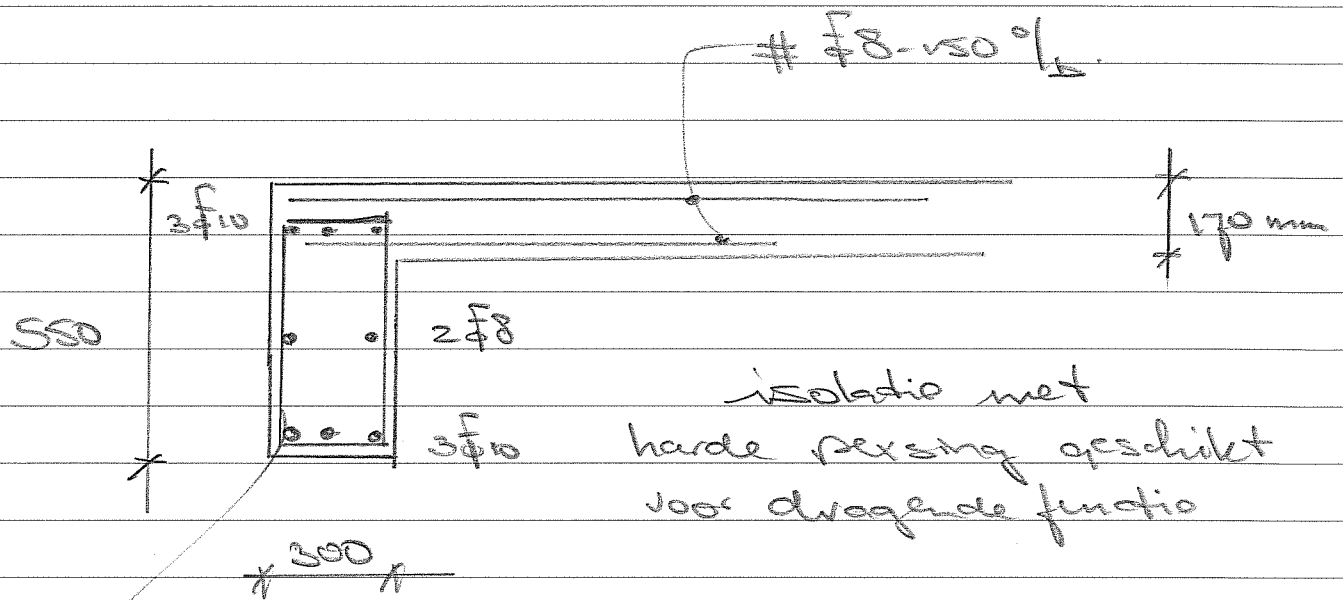 # Ø8-150 o/b.
3Ø10
170 mm
550
2Ø8
isolatie met
3Ø10
harde persing geschikt
voor dragende functie
300